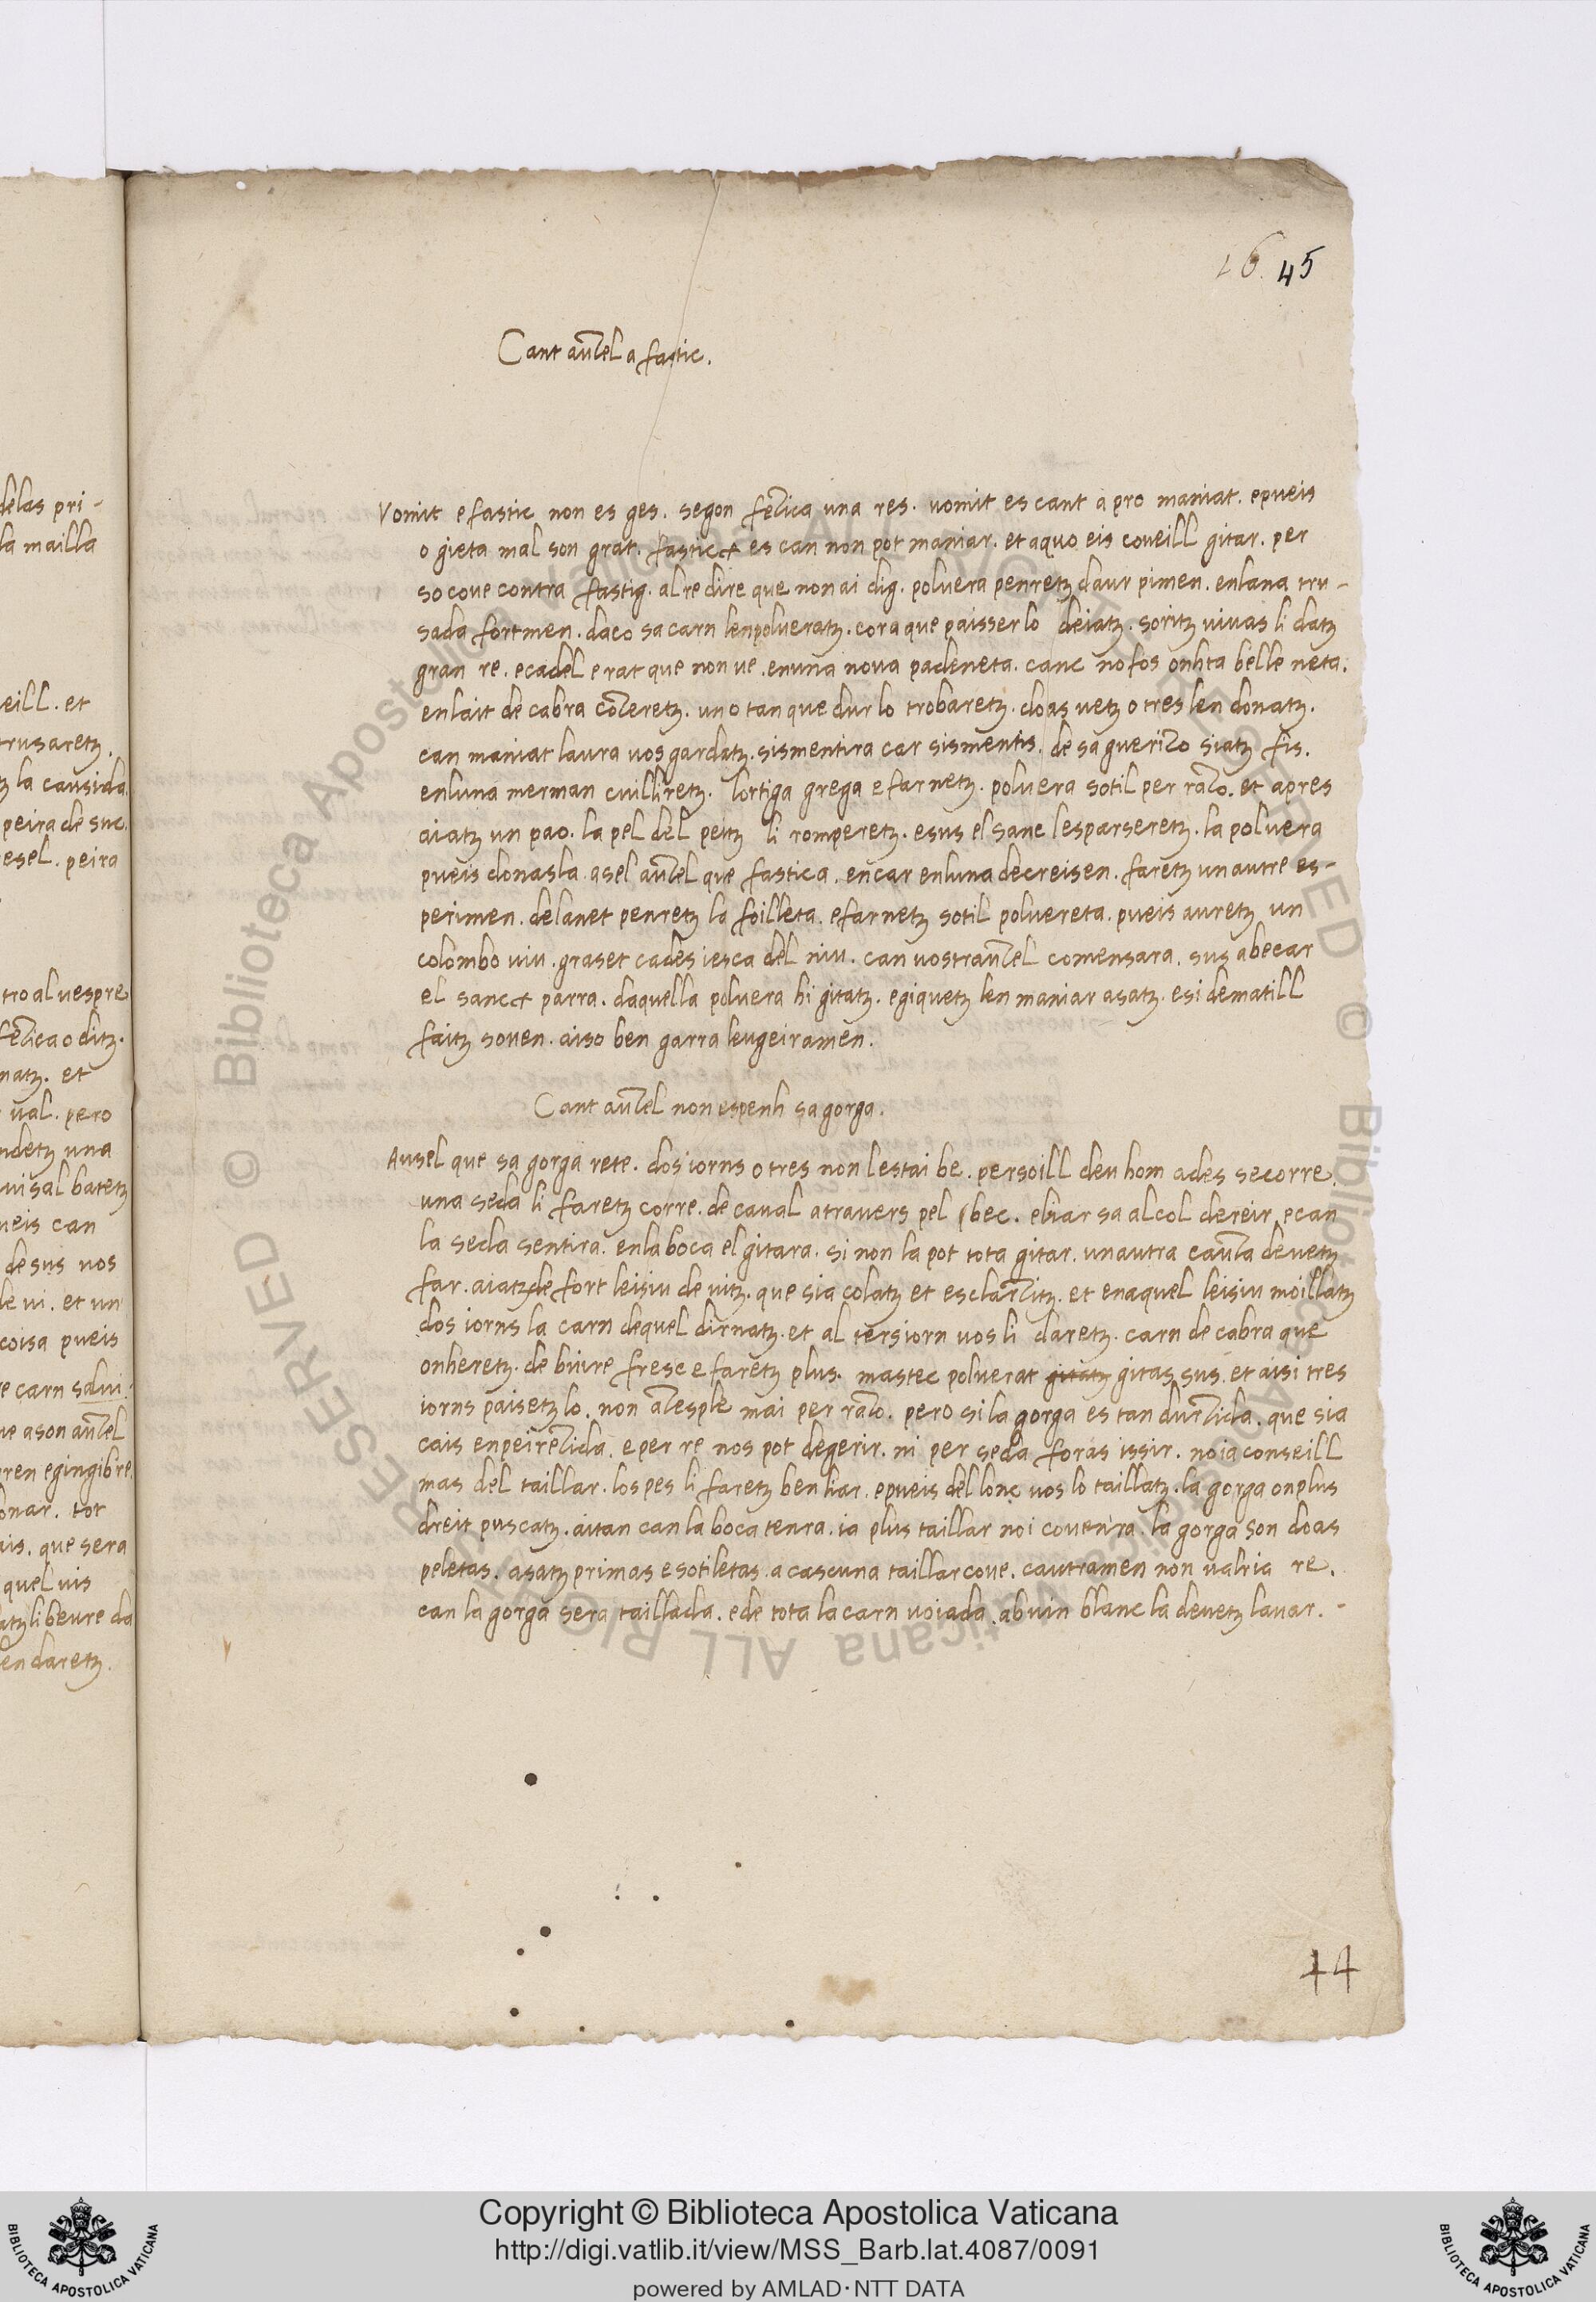 16. 45
Cant auzel a fastic.
Vomit e fastic non es ges. segon fezica una res. vomit es cant a pro maniat. epueis
o gieta mal son grat. fastic es can non pot maniar. et aquo eis coveill gitar. per
so cove contra fastig. al re dire que non ai dig. polvera penretz daur pimen. enlana tru-
sada fortmen. daco sa carn lenpolveratz. cora que paisser lo deiatz. soritz vivas li datz
gran re. ecadel e rat que non ve. enuna nova padeneta. canc no fos onhta belle neta.
enlait de cabra cozeretz. un o tan que dur lo trobaretz. doas vetz o tres len donatz.
can maniat laura vos gardatz. sismentira car sismentis. de sa guerizo siatz fis.
enluna merman cuilliretz. lortiga grega e far netz. polvera sotil per razo. et apres
aiatz un pao. la pel del peitz li romperetz. esus el sanc lesparseretz. la polvera
pueis donasla. asel auzel que fastica. encar enluna decreisen. faretz un autre es-
perimen. delanet penretz la foilleta. efar netz sotil polvereta. pueis auretz un
colombo viu. graset cades iesca del niu. can vostrauzel comensara. sus abecar
el sanc parra. daquella polvera hi gitatz. egiquetz len maniar asatz. esi dematill
faitz soven. aiso ben garra leugeiramen.
Cant auzel non espenh sa gorga.
Ausel que sa gorga rete. dos iorns o tres non lestai be. persoill deu hom ades secorre.
una seda li faretz corre. de caval atravers pel bec. eliar sa al col dereir. ecan
la seda sentira. enla boca el gitara. si non la pot tota gitar. un autra cauza devetz
far. aiatz de fort leisiu de vitz. que sia colatz et esclarzitz. et enaquel leisiu moillatz
dos iorns la carn dequel dirnatz. et al ters iorn vos li daretz. carn de cabra que
onheretz. de buire fresc e faretz plus. mastec polverat gitatz gitas sus. et aisi tres
iorns paisetz lo. non azesple mai per razo. pero si la gorga es tan durzida. que sia
cais enpeirezida. e per re nos pot degerir. ni per seda foras issir. no ia conseill
mas del taillar. los pes li faretz ben liar. epueis del lonc vos lo taillatz. la gorga on plus
dreit puscatz. aitan can la boca tenra. ia plus taillar noi covenra. la gorga son doas
peletas. asatz primas e sotiletas. a cascuna taillar cove. cautramen non valria re.
can la gorga sera taillada. ede tota la carn voiada. ab vin blanc la devetz lavar.
44
delas pri-
la mailla
veill. et
trusaretz.
tz la causida.
peira de suc.
esel. peira
tro al vespre
fezica o ditz.
natz. et
val. pero
ndetz una
vi sal batetz
ueis can
desus vos
de vi. et un
coisa pueis
re carn salvi.
ve a son auzel
pren egingibre.
onar. tot
ais. que sera
quel vis
atz li beure da
len daretz.
© Biblioteca Apostolica Vaticana ALL RIGHTS RESERVED © Biblioteca Apostolica Vaticana ALL RIGHTS RESERVED
BIBLIOTECA APOSTOLICA VATICANA
Copyright © Biblioteca Apostolica Vaticana
http://digi.vatlib.it/view/MSS_Barb.lat.4087/0091
powered by AMLAD·NTT DATA
BIBLIOTECA APOSTOLICA VATICANA